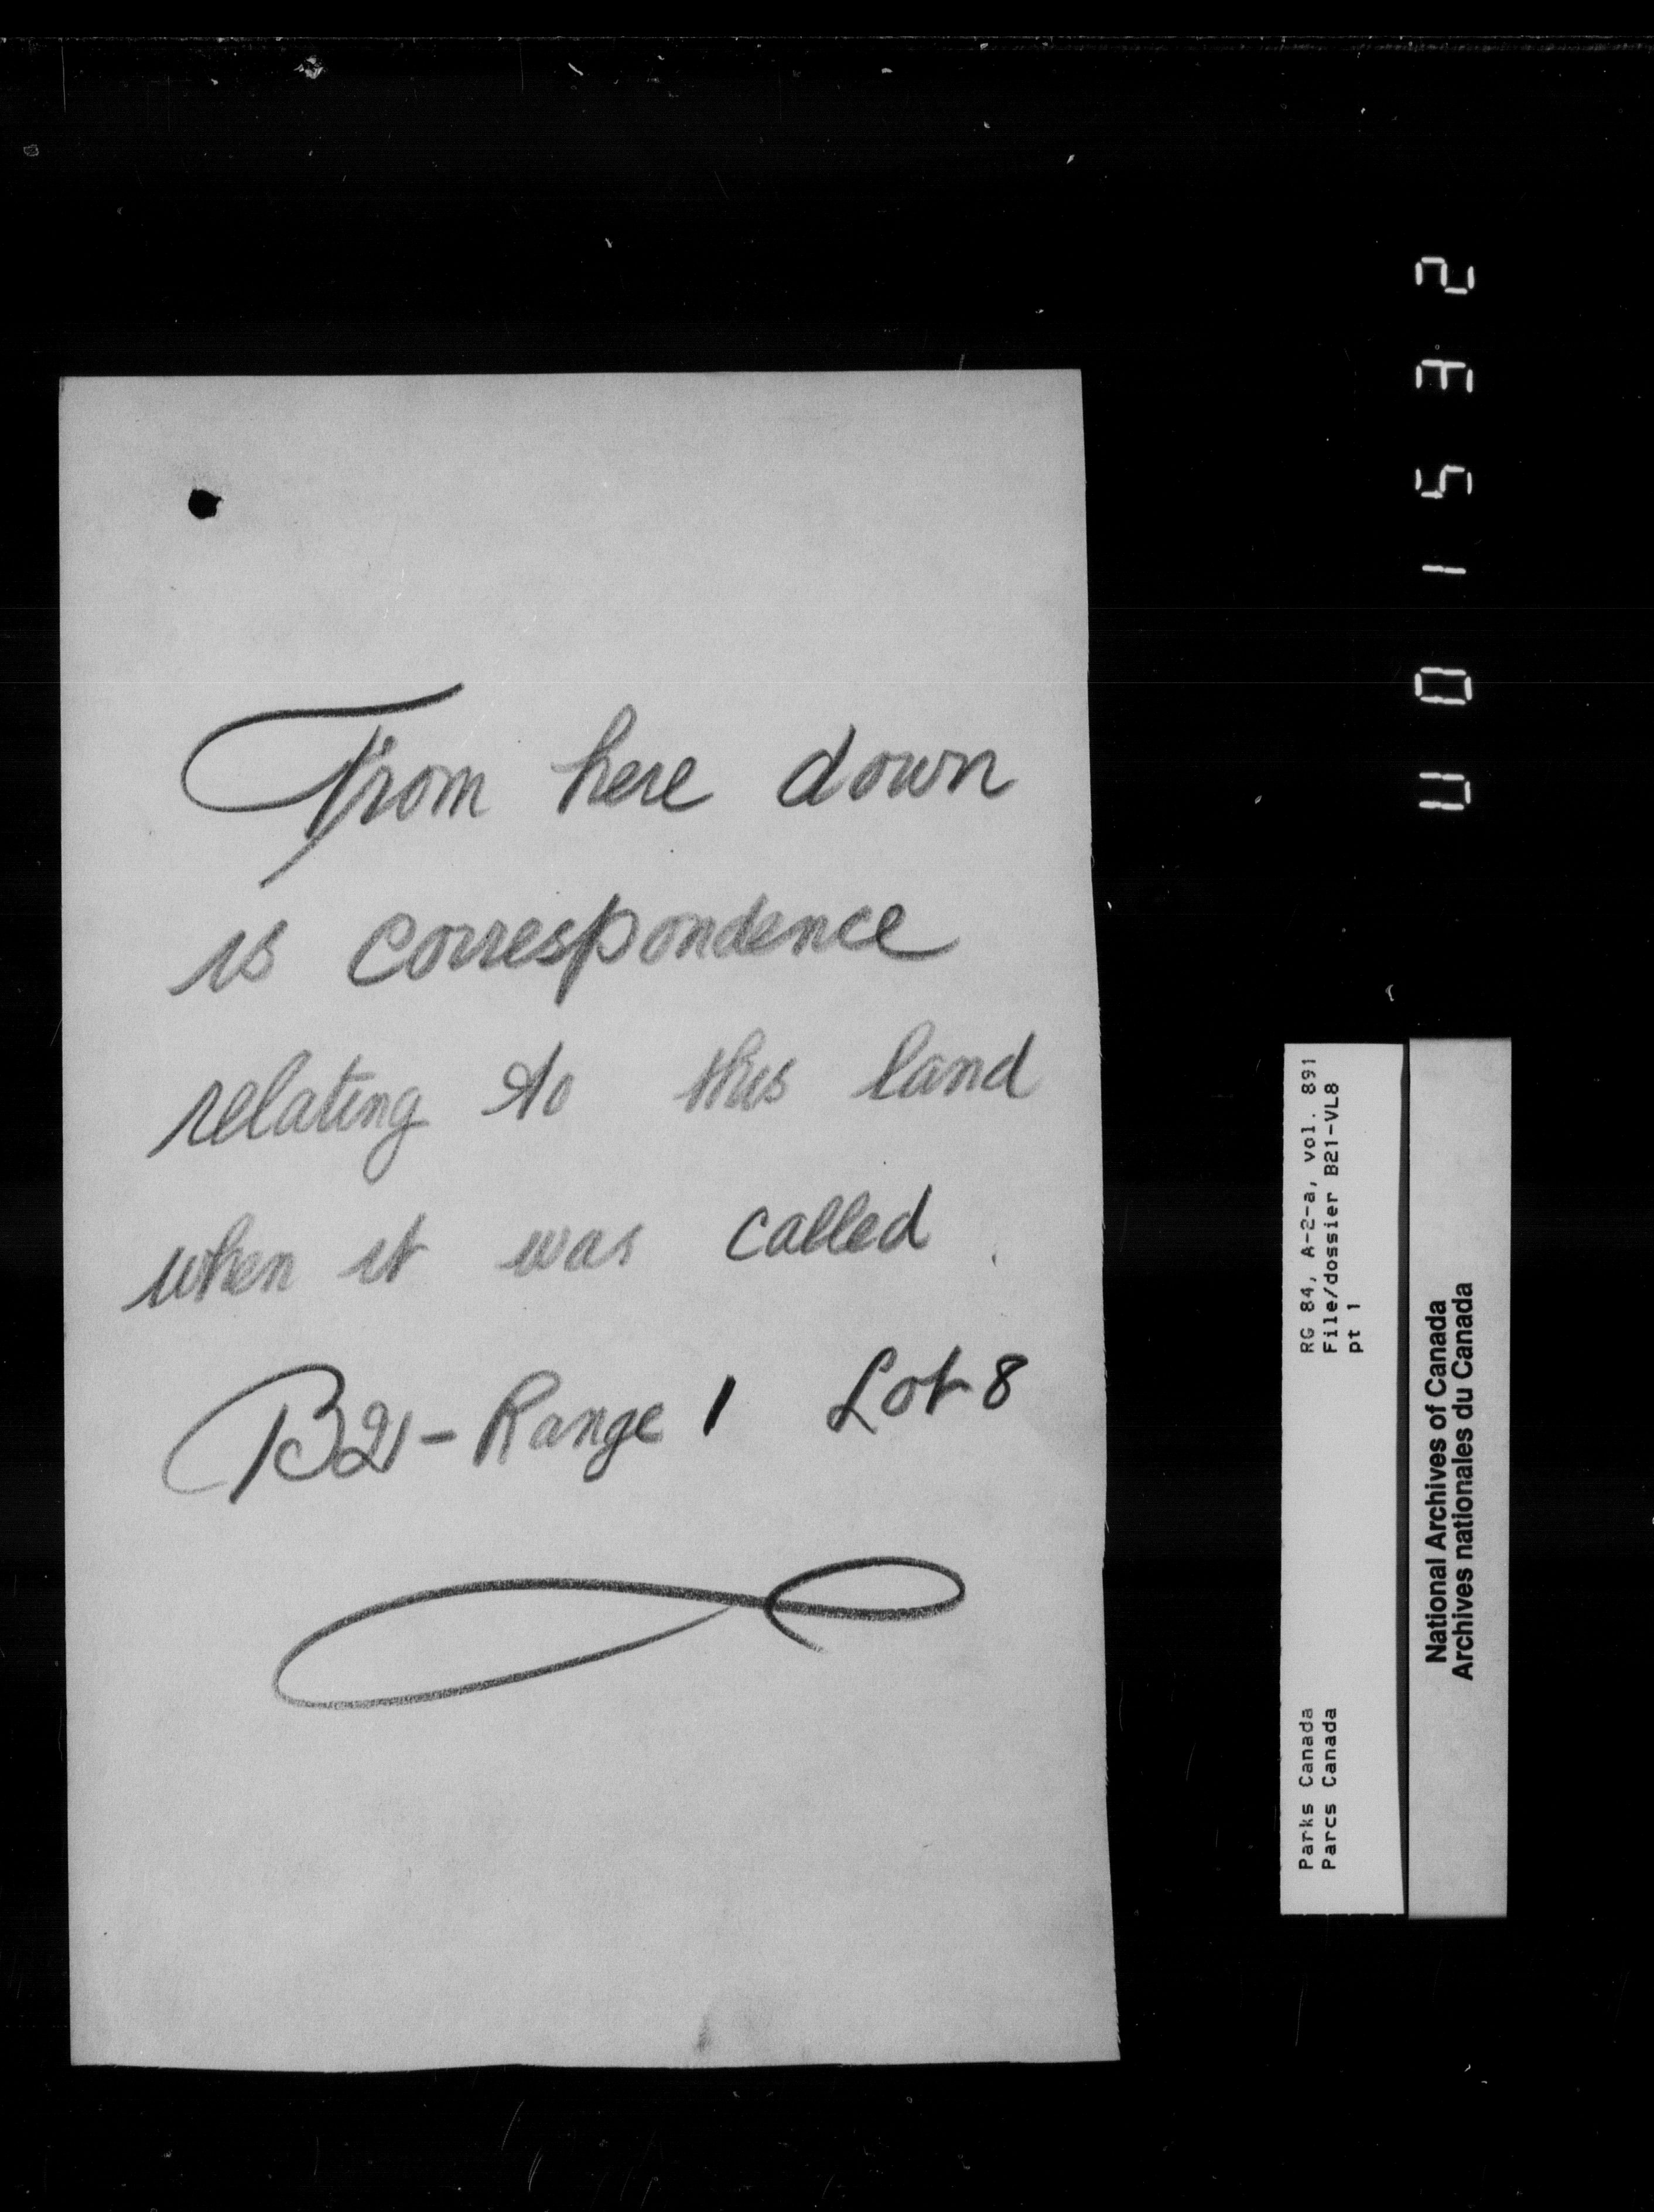 From here down
is correspondence
relating to this land
when it was called
B21 - Range 1 Lot 8
U01532
RG 84, A-2-a, vol. 891
File/dossier B21-VL8
pt 1
Parks Canada
Parcs Canada
National Archives of Canada
Archives nationales du Canada